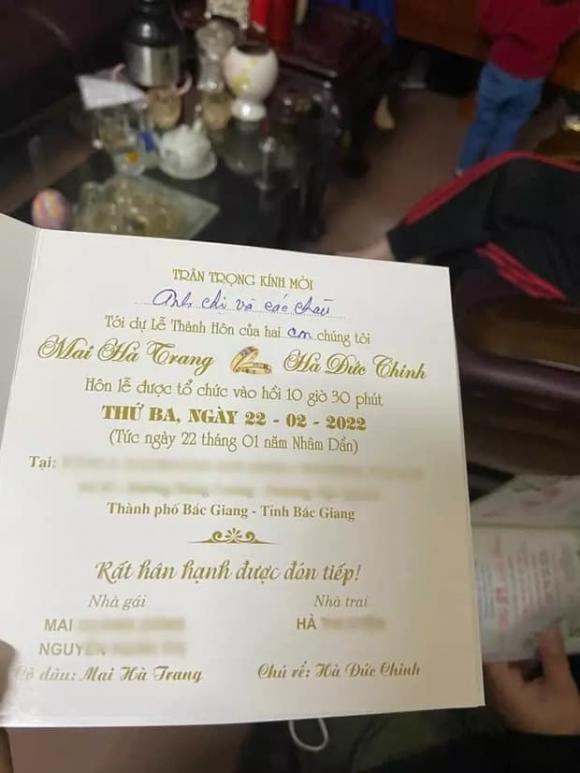 TRÂN TRỌNG KÍNH MỜI
Anh, chị và các cháu
Tới dự Lễ Thành Hôn của hai con chúng tôi
Mai Hà Trang Hà Đức Chinh
Hôn lễ được tổ chức vào hồi 10 giờ 30 phút
THỨ BA, NGÀY 22 - 02 - 2022
(Tức ngày 22 tháng 01 năm Nhâm Dần)
Tại:
Thành phố Bắc Giang - Tỉnh Bắc Giang
Rất hân hạnh được đón tiếp!
Nhà gái Nhà trai
MAI HÀ
NGUYỄN
Cô dâu: Mai Hà Trang Chú rể: Hà Đức Chinh